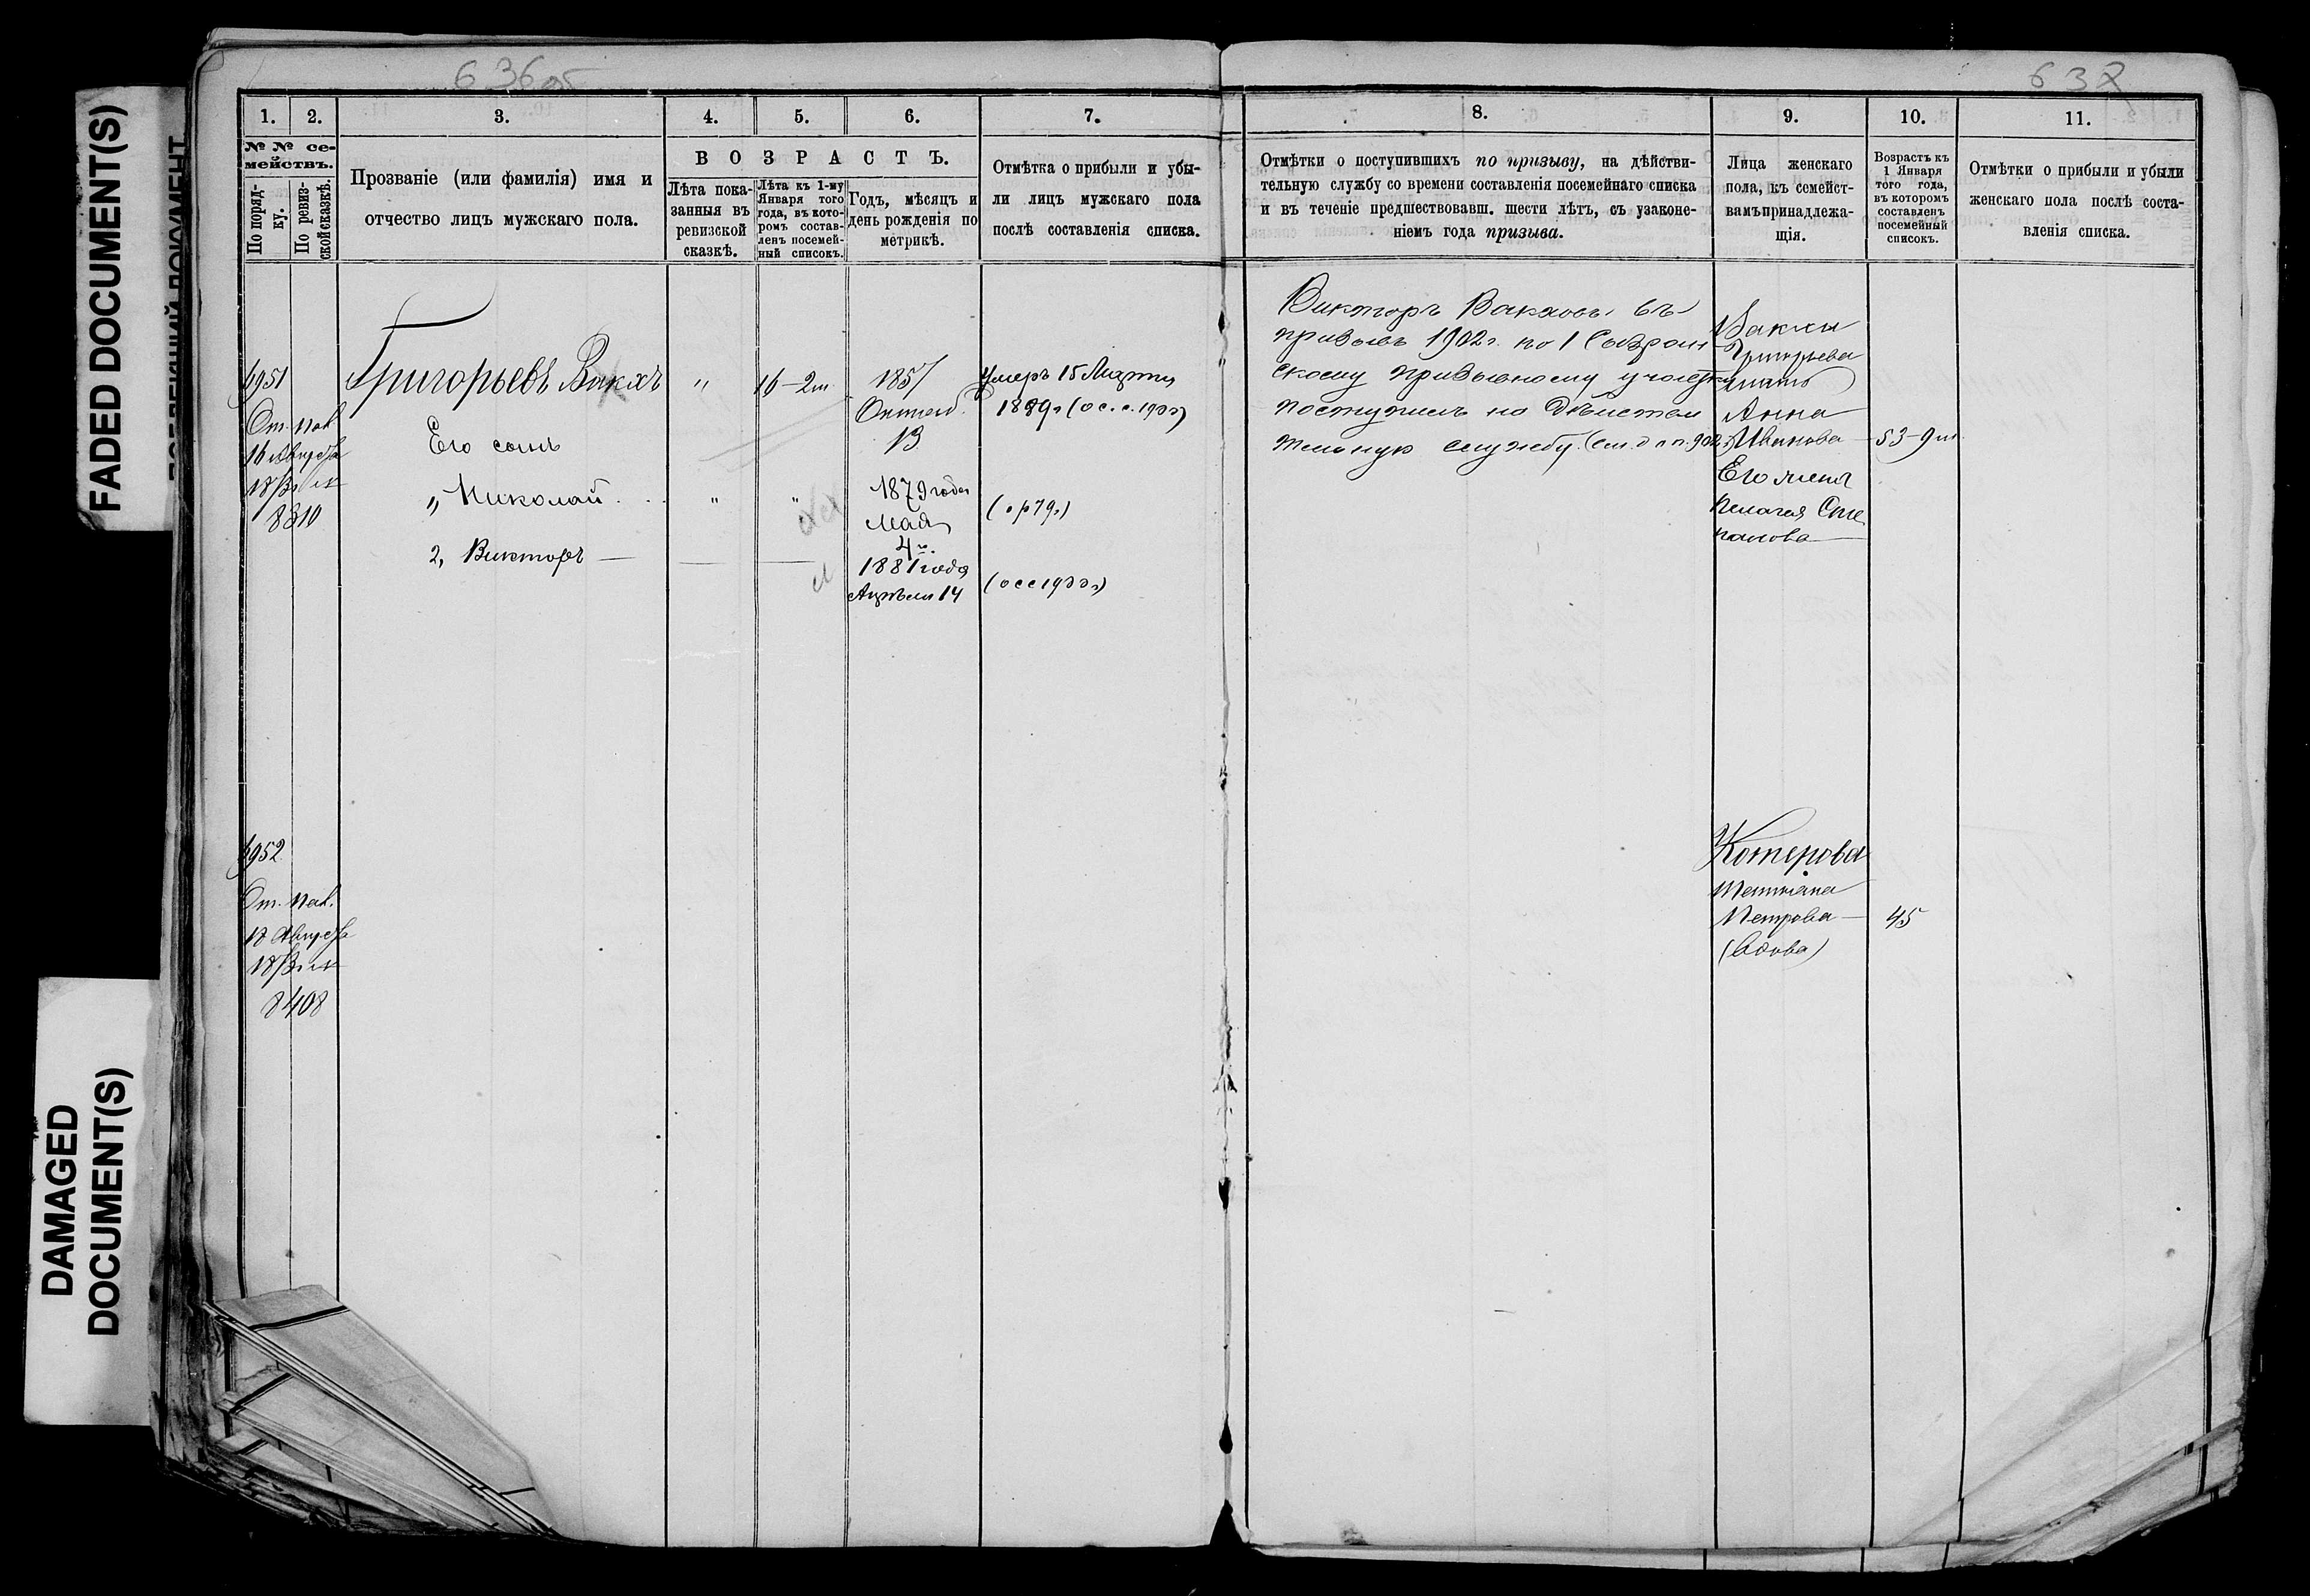 FADED DOCUMENT(S)
DAMAGED
DOCUMENT(S)
636об
1. 2. 3. 4. 5. 6. 7.
№ № се-
мействъ.
По поряд-
ку.
По ревиз-
ской сказкѣ.
Прозваніе (или фамилія) имя и
отчество лицъ мужскаго пола.
ВОЗРАСТЪ.
Лѣта пока-
занныя въ
ревизской
сказкѣ.
Лѣта къ 1-му
Января того
года, въ кото-
ромъ состав-
ленъ посемей-
ный списокъ.
Годъ, мѣсяцъ и
день рожденія по
метрикѣ.
Отмѣтка о прибыли и убы-
ли лицъ мужскаго пола
послѣ составленія списка.
6951
От. пов.
16 Августа
8310
Григорьевъ Вакхъ
" 16-2м
1857
Октяб.
13
Умеръ 15 Марта
1889г (ос.с.1900г)
Его сыны
" Николай " "
1879 года
Мая
4го.
(ор79г)
2, Викторъ
1881 года
Апрѣля 14
(осс1900г)
6952
От. пов.
17 Августа
8408
637
8. 9. 10. 11.
Отмѣтки о поступившихъ по призыву, на дѣйстви-
тельную службу со времени составленія посемейнаго списка
и въ теченіе предшествовавш. шести лѣтъ, съ узаконе-
ніемъ года призыва.
Лица женскаго
пола, къ семейст-
вамъ принадлежа-
щія.
Возрастъ къ
1 Января
того года,
въ которомъ
составленъ
посемейный
списокъ.
Отмѣтки о прибыли и убыли
женскаго пола послѣ соста-
вленія списка.
Викторъ Вакховъ въ
призывъ 1902г. по 1
скому призывному участку
поступилъ на дѣйстви
тельную службу.
Вакха
Григорьева
мать
Анна
Иванова 53-9м
Его жена
Пелагея Сте
панова
Котерова
Татіана
Петрова 45
(вдова)